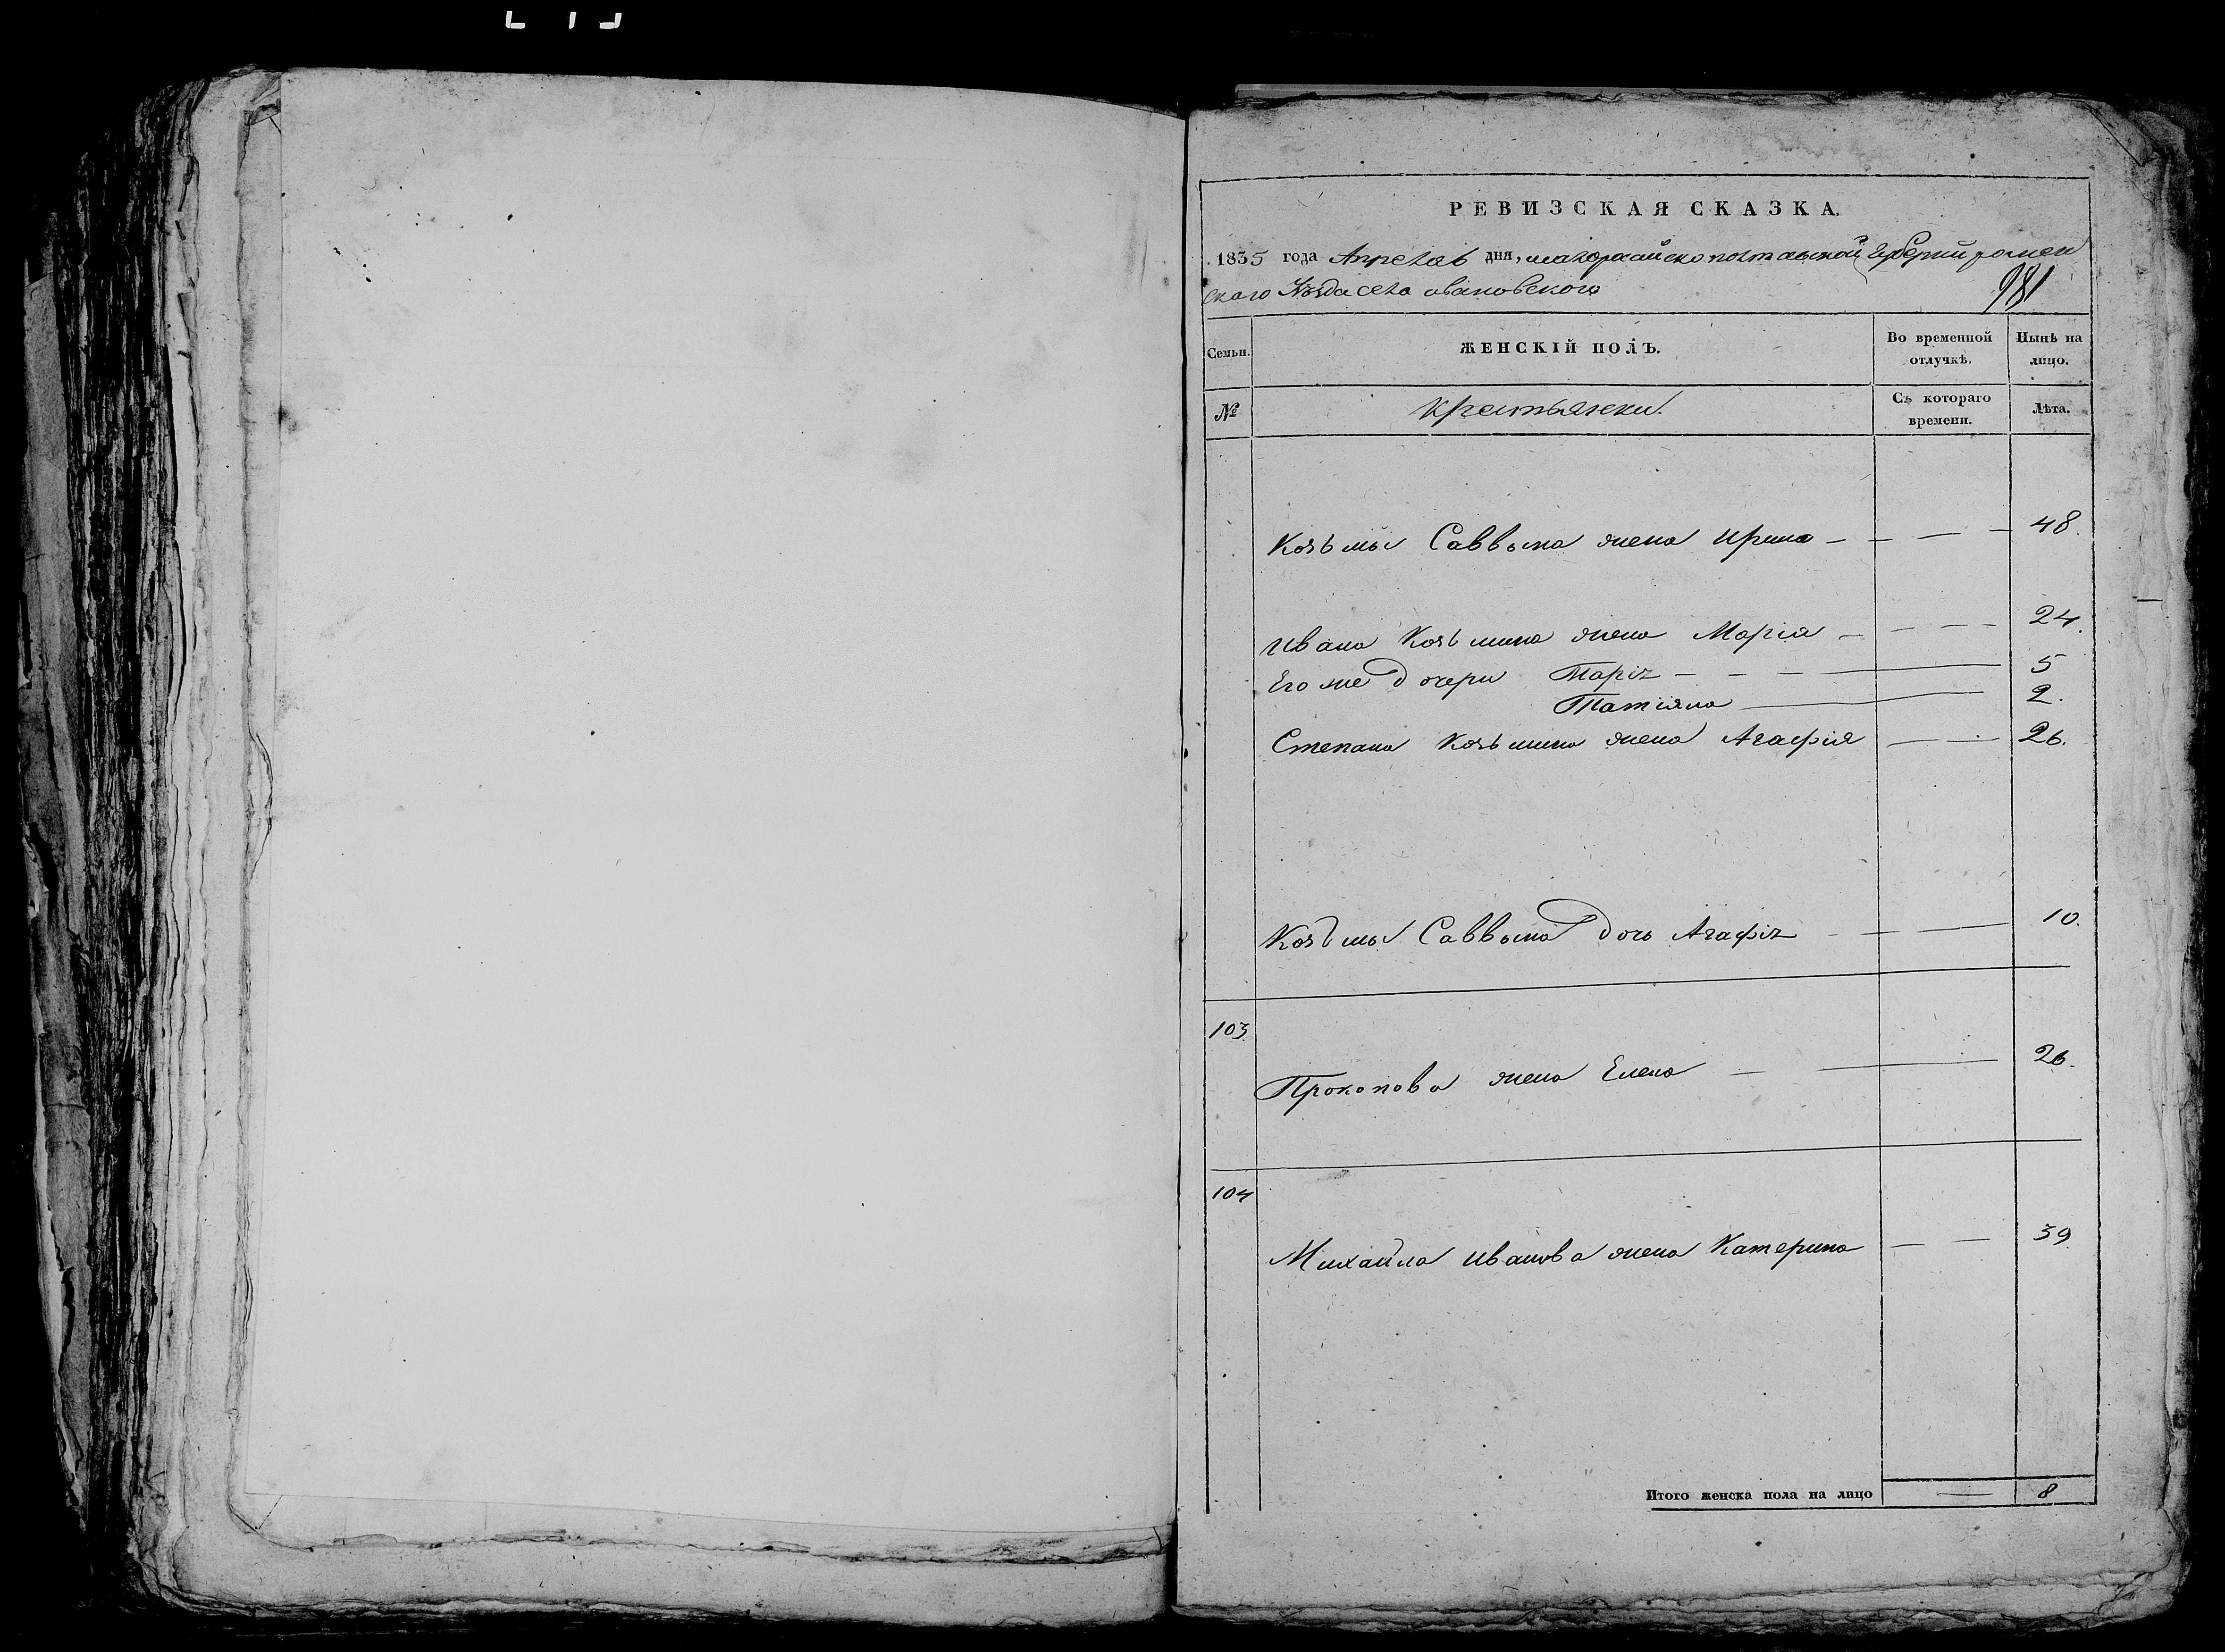 РЕВИЗСКАЯ СКАЗКА.
1835 года Апреля 6 дня, малороссийско полтавской губернии ромен
ского уезда села ивановского
981
Семьи. ЖЕНСКІЙ ПОЛЪ. Во временной отлучкѣ. Нынѣ на лицо.
№ крестьянки. Съ котораго времени. Лѣта.
Козьмы Саввына жена Ирина 48.
Ивана Козьмина жена Марія 24.
Его же дочери Марія 5
Татіяна 2.
Степана Козьмина жена Агафія 26.
Козьмы Саввына дочь Агафія 10.
103
Прокопова жена Елена 26.
104
Михайла Иванова жена Катерина 39
Итого женска пола на лицо — 8